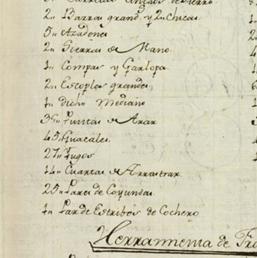 2„ Barras grand.s y 2 Chicas
5„ Azadones
2„ Sierras de Mano
1„ Compas y Garlopa
2„ Escoplos grandes
1„ dicho Mediano
36„ Puntas de Arar
45 Huacales
27 Yugos
14„ Cuartas de Arrastrar
25„ Pares de Coyundas
1„ Par de Estribos de Cochero
Herramienta de